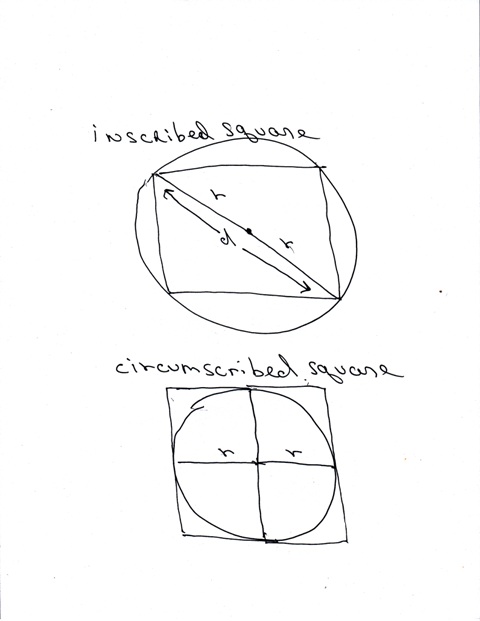 inscribed square
r
d
r
circumscribed square
r r